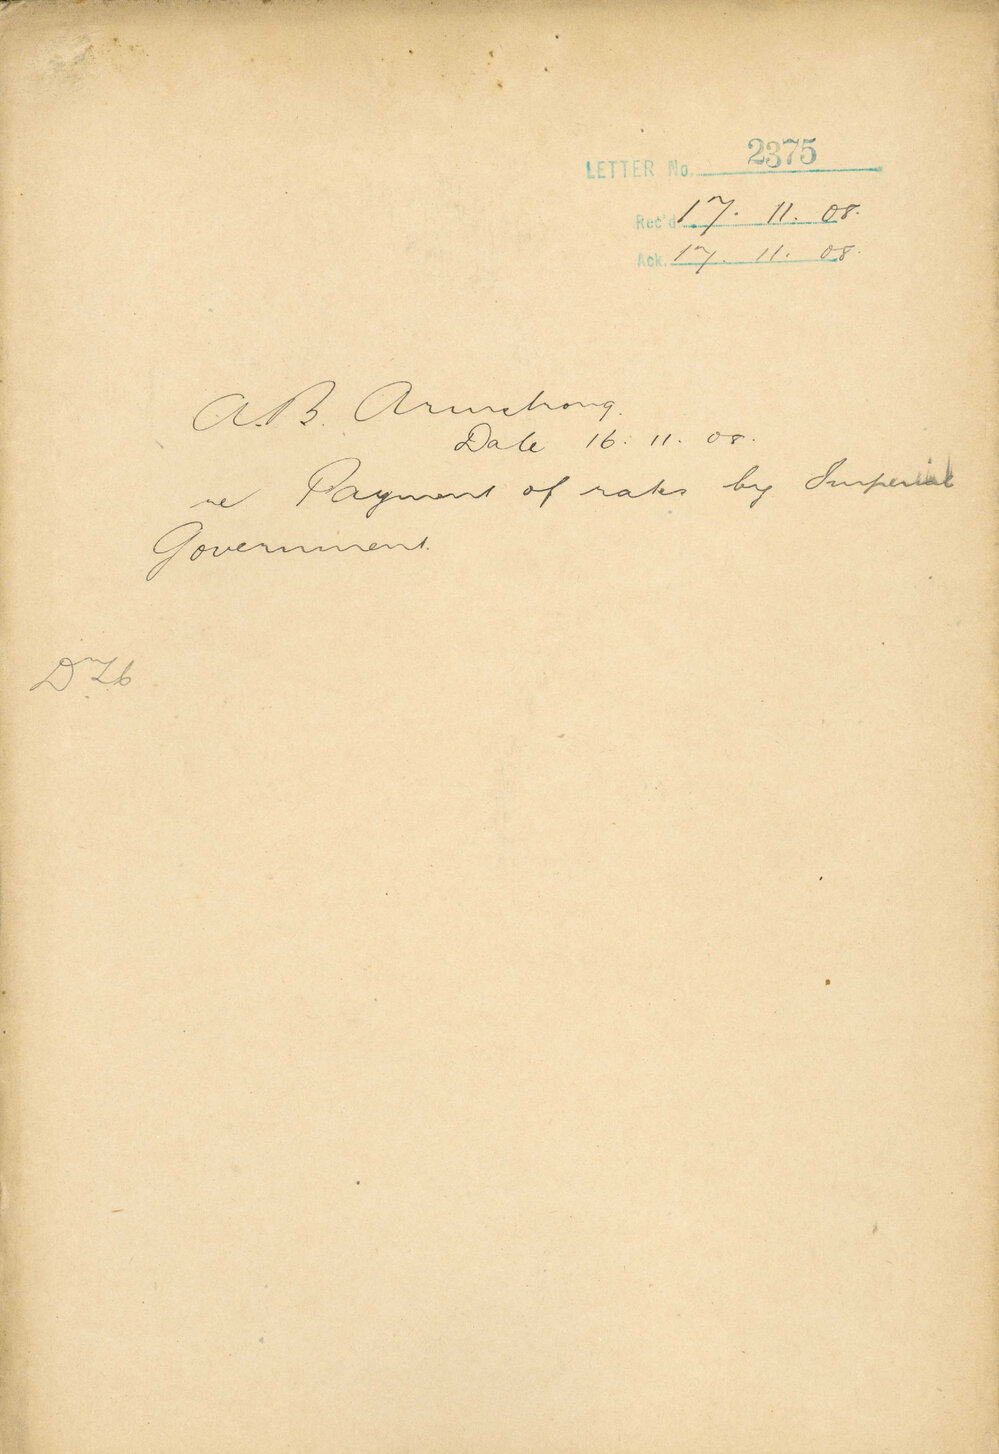 LETTER No. 2375
Rec'd 17. 11. 08.
Ack. 17. 11. 08.
A.B. Armstrong.
Date 16. 11. 08.
re Payment of rates by Imperial
Government.